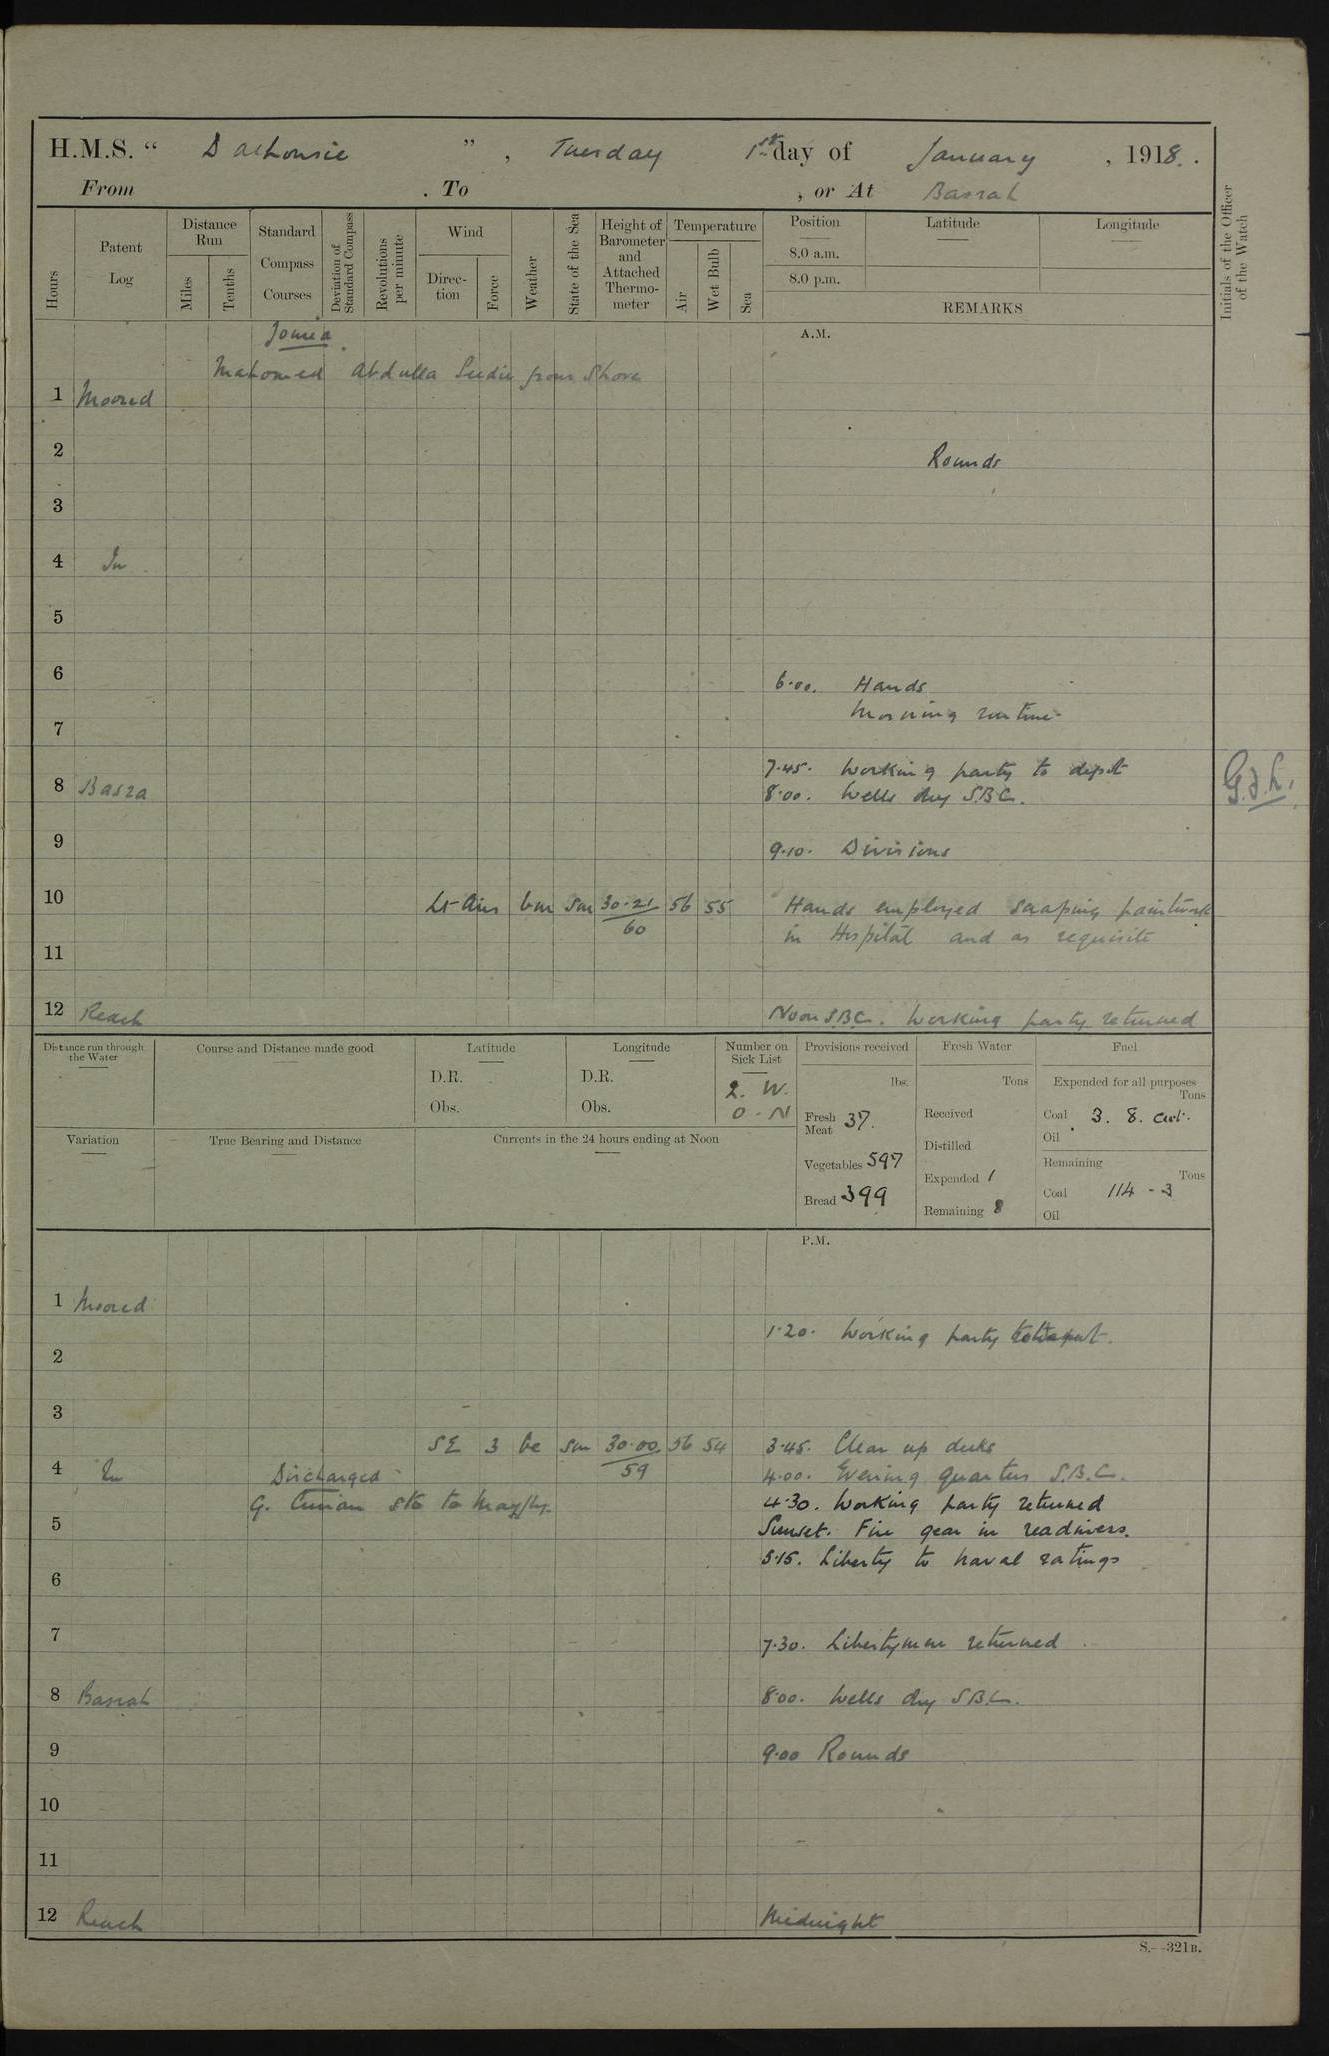 H.M.S. “ Dalhousie ” , Tuesday 1st day of January , 1918.
From . To , or At Basrah
Hours
Patent Log
Distance Run
Miles
Tenths
Standard Compass Courses
Deviation of Standard Compass
Revolutions per minute
Wind
Direction
Force
Weather
State of the Sea
Height of Barometer and Attached Thermometer
Temperature
Air
Wet Bulb
Sea
Position
8.0 a.m.
8.0 p.m.
Latitude
Longitude
REMARKS
Initials of the Officer of the Watch
A.M.
Joined
Mahomed Abdulla Seedie from Shore
1 Moored
2 Rounds
3
4 In
5
6 6.00. Hands
Morning routine
7
7.45. Working party to depot
8 Basra 8.00. Wells dry S.B.C.
9 9.10. Divisions
10 Lt Airs bm Sm 30.21 56 55 Hands employed scraping paintwork
60 in Hospital and as requisite
11
12 Reach Noon S.B.C. Working party returned
Distance run through the Water
Course and Distance made good
Latitude
D.R.
Obs.
Longitude
D.R.
Obs.
Number on Sick List
2. W.
0 - N
Variation
True Bearing and Distance
Currents in the 24 hours ending at Noon
Provisions received
lbs.
Fresh Meat 37.
Vegetables 597
Bread 399
Fresh Water
Tons
Received
Distilled
Expended 1
Remaining 8
Fuel
Expended for all purposes
Tons
Coal 3. 8. cwt.
Oil
Remaining
Tons
Coal 114 - 3
Oil
P.M.
1 Moored
1.20. Working party
2
3
SE 3 bc Sm 30.00 56 54 3.45. Clear up decks
59
4 In Discharged 4.00. Evening quarters S.B.C.
G. to
4.30. Working party returned
5 Sunset. Fire gear in readiness.
5.15. Liberty to naval ratings
6
7 7.30. Libertymen returned
8 Basrah 8.00. Wells dry S.B.C.
9 9.00 Rounds
10
11
12 Reach Midnight
S.—321B.